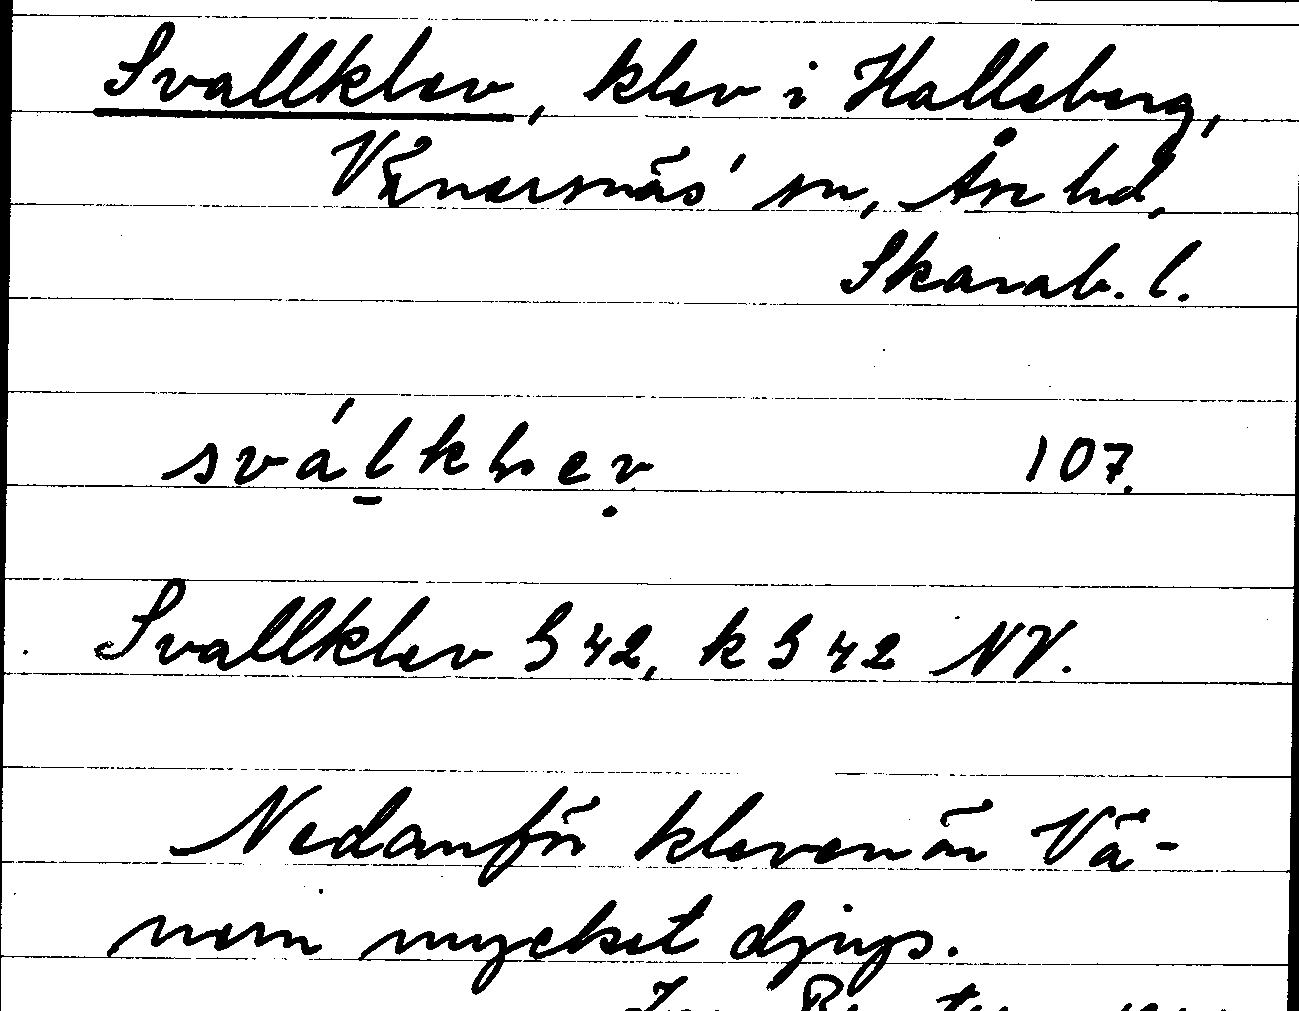 Svallklev, klev i Halleberg,
Vänersnäs' sn, Åse hd,
Skarab. l.
107.
Svallklev S 42, k S 42 NV.
Nedanför kleven är Vä-
nern mycket djup.